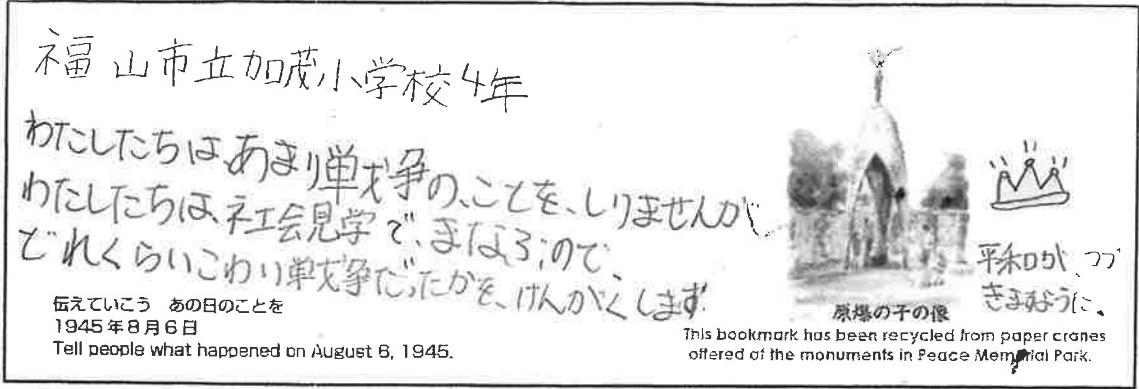 福山市立加茂小学校4年
わたしたちは、あまり戦争の、ことを、しりませんが
わたしたちは、社会見学で、まなぶので、
どれくらいこわい戦争だったかを、けんがくします
平和が、つづ
きますように、
原爆の子の像
伝えていこう　あの日のことを
1945年8月6日
Tell people what happened on August 6, 1945.
This bookmark has been recycled from paper cranes
offered at the monuments in Peace Memorial Park.